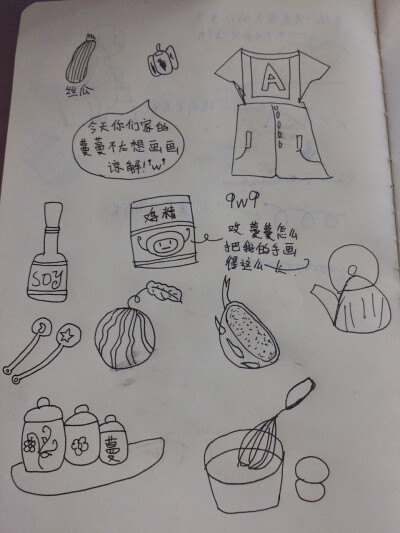 丝瓜
A
今天你们家的
蔓蔓不太想画画
谅解!!'w'
SOY
鸡精
9w9
哎 蔓蔓怎么
把我的手画
得这么
蔓